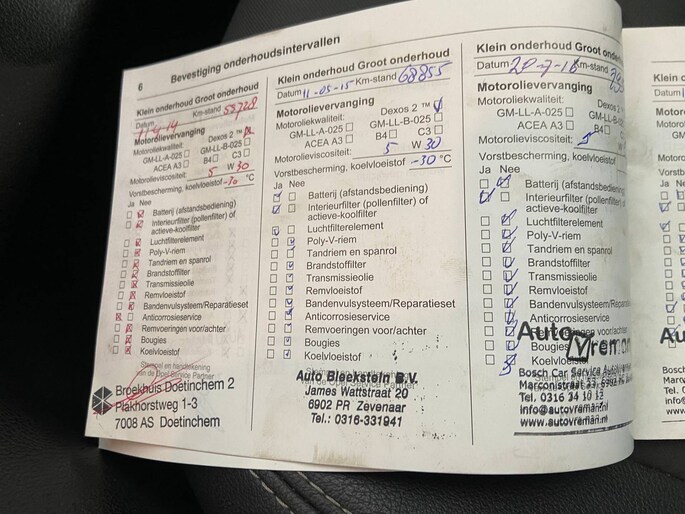 6 Bevestiging onderhoudsintervallen
Klein onderhoud Groot onderhoud
Datum 11-4-14 Km-stand
Motorolievervanging
Motoroliekwaliteit: Dexos 2 ™
GM-LL-A-025 GM-LL-B-025
ACEA A3 B4 C3
Motorolieviscositeit: 5 W 30
Vorstbescherming, koelvloeistof -30 °C
Ja Nee
Batterij (afstandsbediening)
Interieurfilter (pollenfilter) of
actieve-koolfilter
Luchtfilterelement
Poly-V-riem
Tandriem en spanrol
Brandstoffilter
Transmissieolie
Remvloeistof
Bandenvulsysteem/Reparatieset
Anticorrosieservice
Remvoeringen voor/achter
Bougies
Koelvloeistof
Stempel en handtekening
van de Opel Service Partner
Broekhuis Doetinchem 2
Plakhorstweg 1-3
7008 AS Doetinchem
Klein onderhoud Groot onderhoud
Datum 11-05-15 Km-stand 68855
Motorolievervanging
Motoroliekwaliteit: Dexos 2 ™
GM-LL-A-025 GM-LL-B-025
ACEA A3 B4 C3
Motorolieviscositeit: 5 W 30
Vorstbescherming, koelvloeistof -30 °C
Ja Nee
Batterij (afstandsbediening)
Interieurfilter (pollenfilter) of
actieve-koolfilter
Luchtfilterelement
Poly-V-riem
Tandriem en spanrol
Brandstoffilter
Transmissieolie
Remvloeistof
Bandenvulsysteem/Reparatieset
Anticorrosieservice
Remvoeringen voor/achter
Bougies
Koelvloeistof
Auto Bleekstein B.V.
James Wattstraat 20
6902 PR Zevenaar
Tel.: 0316-331941
Klein onderhoud Groot onderhoud
Datum 20-7-16 Km-stand
Motorolievervanging
Motoroliekwaliteit: Dexos 2
GM-LL-A-025 GM-LL-B-025
ACEA A3 B4
Motorolieviscositeit: 5
Vorstbescherming, koelvloeistof
Ja Nee
Batterij (afstandsbediening)
Interieurfilter (pollenfilter) of
actieve-koolfilter
Luchtfilterelement
Poly-V-riem
Tandriem en spanrol
Brandstoffilter
Transmissieolie
Remvloeistof
Bandenvulsysteem/Reparatieset
Anticorrosieservice
Remvoeringen voor/achter
Bougies
Koelvloeistof
Bosch Car Service
Marconistraat
Tel. 0316 34 10 12
info@autovreman.nl
www.autovreman.nl